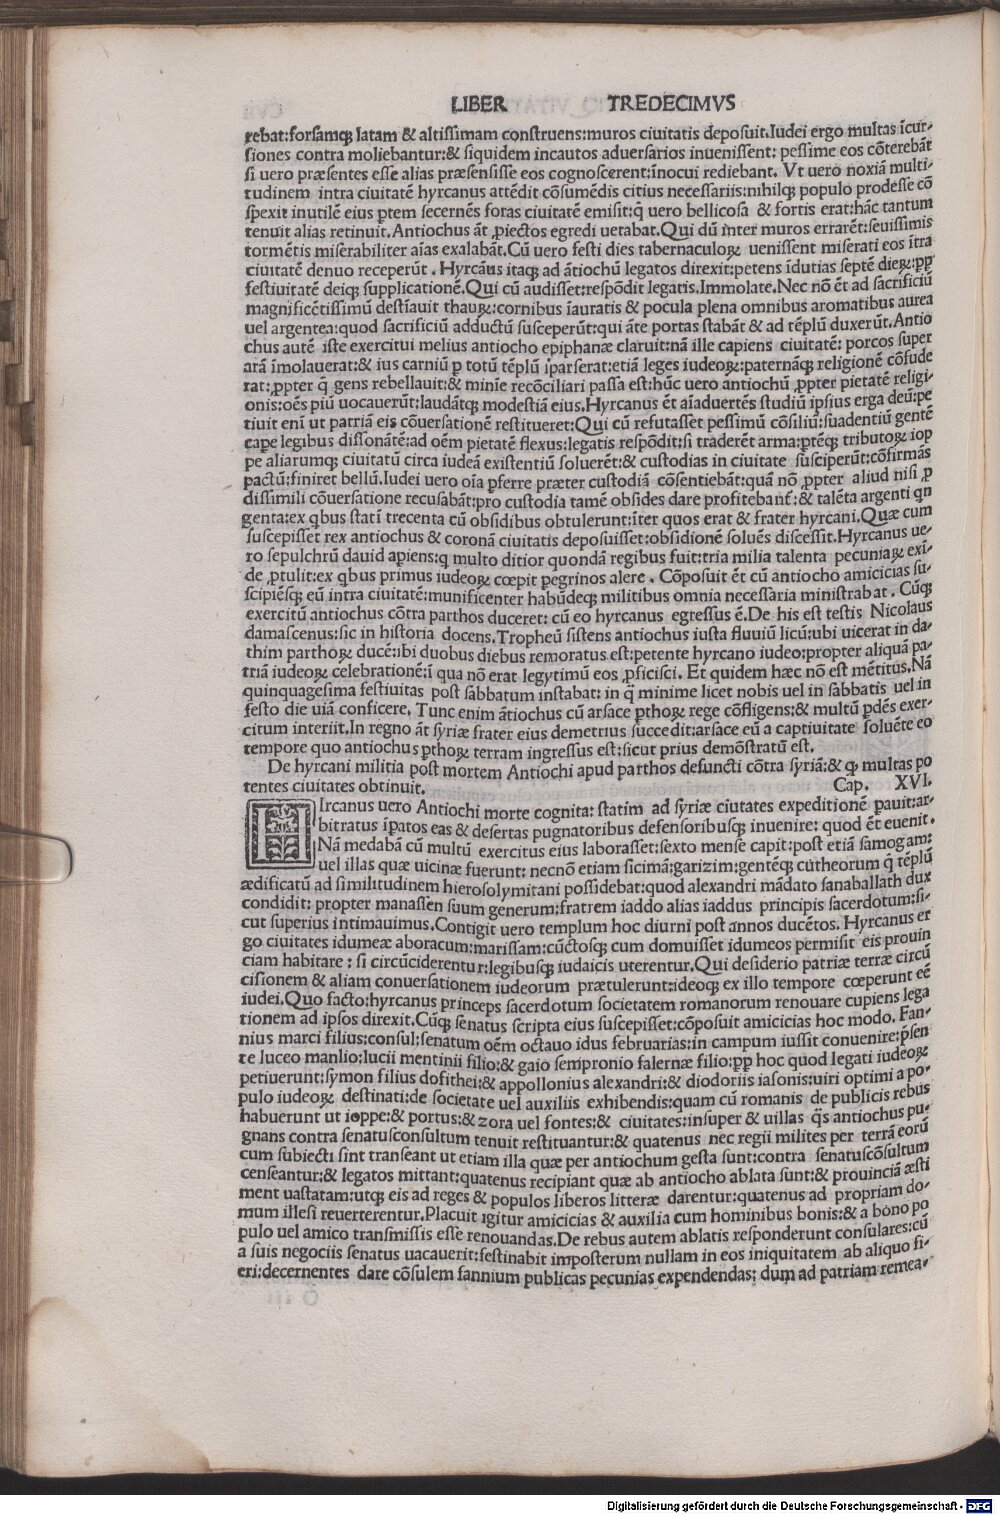 LIBER TREDECIMVS
rebat:forsamqꝫ latam & altissimam construens:muros ciuitatis deposuit.Iudei ergo multas īcur-
siones contra moliebantur:& siquidem incautos aduersarios inuenissent: pessime eos cōterebāt
si uero præsentes esse alias præsensisse eos cognoscerent:īnocui rediebant. Vt uero noxiā multi-
tudinem intra ciuitatē hyrcanus attēdit cōsumēdis citius necessariis:nihilqꝫ populo prodesse cō
spexit inutilē eius ꝑtem secernēs foras ciuitatē emisit:q̄ uero bellicosa & fortis erat:hāc tantum
tenuit alias retinuit.Antiochus āt ꝓiectos egredi uetabat.Qui dū inter muros errarēt:seuissimis
tormētis miserabiliter aīas exalabāt.Cū uero festi dies tabernaculoꝝ uenissent miserati eos ītra
ciuitatē denuo receperūt . Hyrcāus itaqꝫ ad ātiochū legatos direxit:petens īdutias septē dieꝝ:ꝓp̄
festiuitatē deiqꝫ supplicationē.Qui cū audisset:respōdit legatis.Immolate.Nec nō ēt ad sacrificiū
magnificētissimū destīauit thauꝝ:cornibus īauratis & pocula plena omnibus aromatibus aurea
uel argentea:quod sacrificiū adductū susceperūt:qui āte portas stabāt & ad tēplū duxerūt.Antio
chus autē iste exercitui melius antiocho epiphanæ claruit:nā ille capiens ciuitatē: porcos super
arā īmolauerat:& ius carniū ꝑ totū tēplū īparserat:etiā leges iudeoꝝ:paternāqꝫ religionē cōfude
rat:ꝓpter q̄ gens rebellauit:& minīe recōciliari passa est:hūc uero antiochū ꝓpter pietatē religi-
onis:oēs piū uocauerūt:laudātqꝫ modestiā eius.Hyrcanus ēt aīaduertēs studiū ipsius erga deū:pe
tiuit enī ut patriā eis cōuersationē restitueret:Qui cū refutasset pessimū cōsiliū:suadentiū gentē
cape legibus dissonātē:ad oēm pietatē flexus:legatis respōdit:si traderēt arma:ꝑtēqꝫ tributoꝝ iop
pe aliarumqꝫ ciuitatū circa iudeā existentiū soluerēt:& custodias in ciuitate susciperūt:cōfirmās
pactū:finiret bellū.Iudei uero oīa ꝑferre præter custodiā cōsentiebāt:quā nō ꝓpter aliud nisi ꝓ
dissimili cōuersatione recusabāt:pro custodia tamē obsides dare profitebant̄:& talēta argenti qn
genta:ex qbus statī trecenta cū obsidibus obtulerunt:īter quos erat & frater hyrcani.Quæ cum
suscepisset rex antiochus & coronā ciuitatis deposuisset:obsidionē soluēs discessit.Hyrcanus ue-
ro sepulchrū dauid aꝑiens:q multo ditior quondā regibus fuit:tria milia talenta pecuniaꝝ exī-
de ꝓtulit:ex qbus primus iudeoꝝ cœpit ꝑegrinos alere . Cōposuit ēt cū antiocho amicicias su-
scipiēsqꝫ eū intra ciuitatē:munificenter habūdeqꝫ militibus omnia necessaria ministrabat . Cūqꝫ
exercitū antiochus cōtra parthos duceret: cū eo hyrcanus egressus ē.De his est testis Nicolaus
damascenus:sic in historia docens.Tropheū sistens antiochus iusta fluuiū licū:ubi uicerat in da-
thim parthoꝝ ducē:ibi duobus diebus remoratus est:petente hyrcano iudeo:propter aliquā pa-
triā iudeoꝝ celebrationē:ī qua nō erat legytimū eos ꝓficisci. Et quidem hæc nō est mētitus.Nā
quinquagesima festiuitas post sabbatum instabat: in q̄ minime licet nobis uel in sabbatis uel in
festo die uiā conficere. Tunc enim ātiochus cū arsace ꝑthoꝝ rege cōfligens:& multū ꝑdēs exer-
citum interiit.In regno āt syriæ frater eius demetrius succedit:arsace eū a captiuitate soluēte eo
tempore quo antiochus ꝑthoꝝ terram ingressus est:sicut prius demōstratū est.
De hyrcani militia post mortem Antiochi apud parthos defuncti cōtra syriā:& ꝙ multas po
tentes ciuitates obtinuit. Cap. XVI.
HIrcanus uero Antiochi morte cognita: statim ad syriæ ciutates expeditionē ꝑauit:ar-
bitratus īꝑatos eas & desertas pugnatoribus defensoribusqꝫ inuenire: quod ēt euenit.
Nā medabā cū multū exercitus eius laborasset:sexto mense capit:post etiā samogam:
uel illas quæ uicinæ fuerunt: necnō etiam sicimā:garizim:gentēqꝫ cutheorum q̄ tēplū
ædificatū ad similitudinem hierosolymitani possidebat:quod alexandri mādato sanaballath dux
condidit: propter manassen suum generum:fratrem iaddo alias iaddus principis sacerdotum:si-
cut superius intimauimus.Contigit uero templum hoc diurni post annos ducētos. Hyrcanus er
go ciuitates idumeæ aboracum:marissam:cūctosqꝫ cum domuisset idumeos permisit eis prouin
ciam habitare : si circūciderentur:legibusqꝫ iudaicis uterentur.Qui desiderio patriæ terræ circū
cisionem & aliam conuersationem iudeorum prætulerunt:ideoqꝫ ex illo tempore cœperunt eē
iudei.Quo facto:hyrcanus princeps sacerdotum societatem romanorum renouare cupiens lega
tionem ad ipsos direxit.Cūqꝫ senatus scripta eius suscepisset:cōposuit amicicias hoc modo. Fan-
nius marci filius:consul:senatum oēm octauo idus februarias:in campum iussit conuenire:p̄sen
te luceo manlio:lucii mentinii filio:& gaio sempronio falernæ filio:ꝓp̄ hoc quod legati iudeoꝝ
petiuerunt:symon filius dosithei:& appollonius alexandri:& diodoriis iasonis:uiri optimi a po-
pulo iudeoꝝ destinati:de societate uel auxiliis exhibendis:quam cū romanis de publicis rebus
habuerunt ut ioppe:& portus:& zora uel fontes:& ciuitates:insuper & uillas q̄s antiochus pu-
gnans contra senatusconsultum tenuit restituantur:& quatenus nec regii milites per terrā eorū
cum subiecti sint transeant ut etiam illa quæ per antiochum gesta sunt:contra senatuscōsultum
censeantur:& legatos mittant:quatenus recipiant quæ ab antiocho ablata sunt:& prouinciā æsti
ment uastatam:utqꝫ eis ad reges & populos liberos litteræ darentur:quatenus ad propriam do-
mum illesi reuerterentur.Placuit igitur amicicias & auxilia cum hominibus bonis:& a bono po
pulo uel amico transmissis esse renouandas.De rebus autem ablatis responderunt consulares:cū
a suis negociis senatus uacauerit:festinabit imposterum nullam in eos iniquitatem ab aliquo fi-
eri:decernentes dare cōsulem fannium publicas pecunias expendendas: dum ad patriam remea-
Digitalisierung gefördert durch die Deutsche Forschungsgemeinschaft - DFG